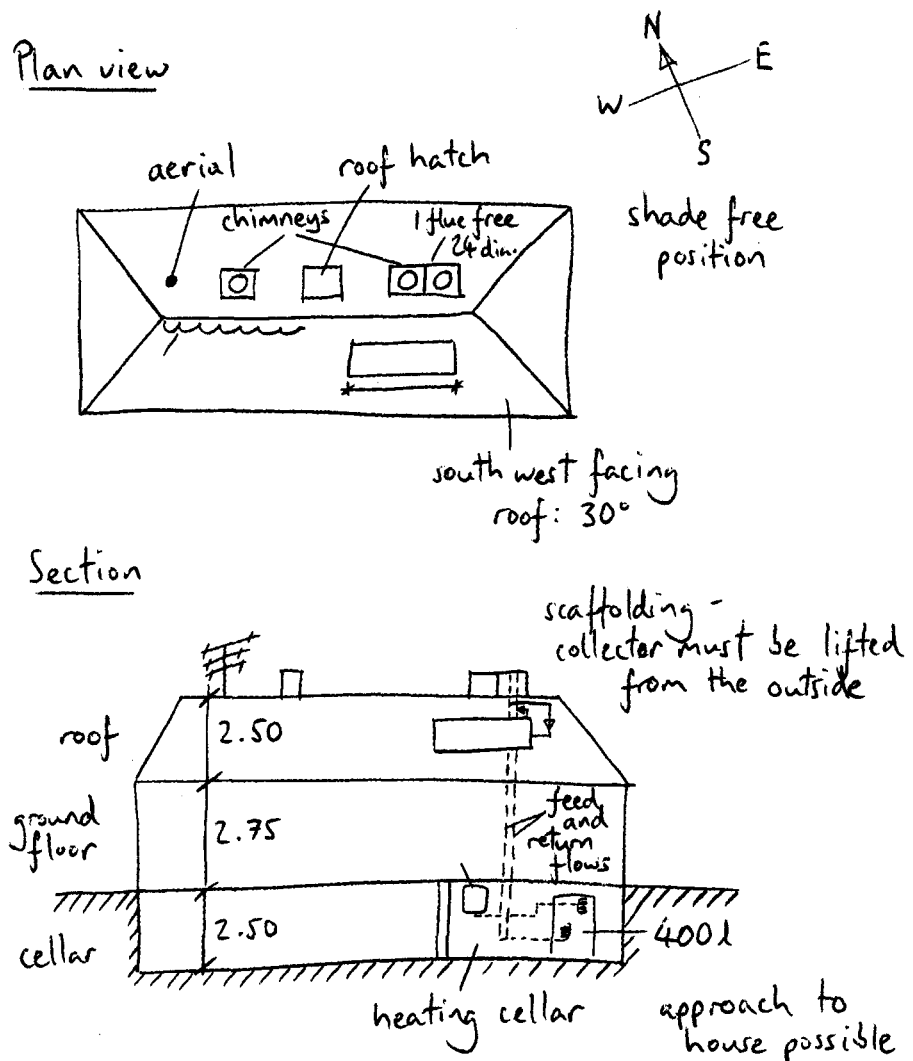 Plan view
N
E
W
S
aerial
roof hatch
chimneys
1 flue free
24 dia.
shade free
position
south west facing
roof: 30°
Section
scaffolding -
collector must be lifted
from the outside
roof
2.50
ground
floor
2.75
feed
and
return
flows
cellar
2.50
400l
heating cellar
approach to
house possible